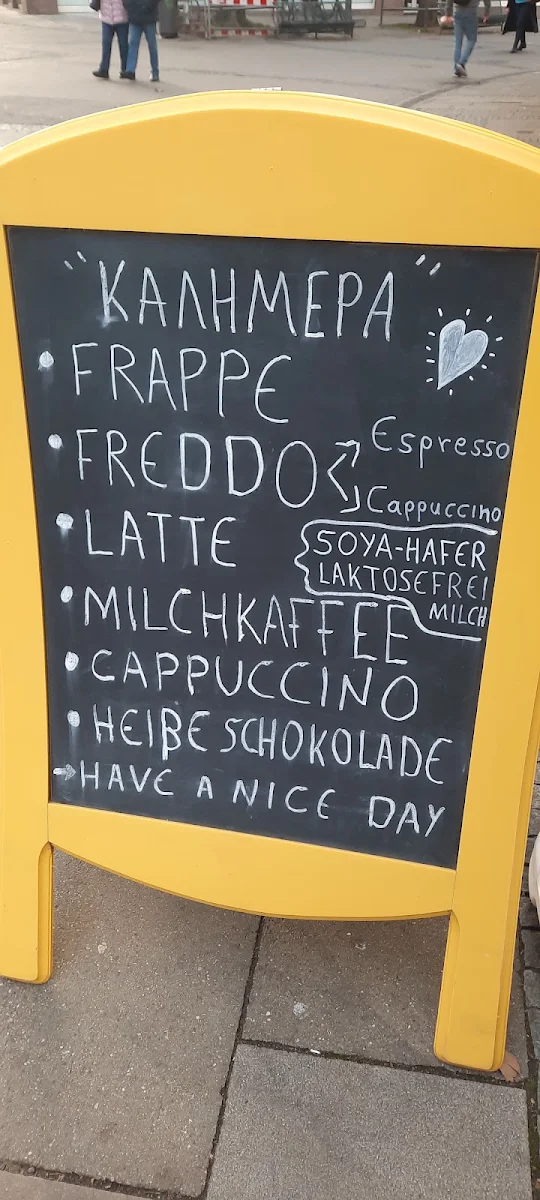 "ΚΑΛΗΜΕΡΑ"
• FRAPPE
• FREDDO
Espresso
Cappuccino
• LATTE
SOYA-HAFER
LAKTOSEFREI
MILCH
• MILCHKAFFEE
• CAPPUCCINO
• HEIßE SCHOKOLADE
→ HAVE A NICE DAY